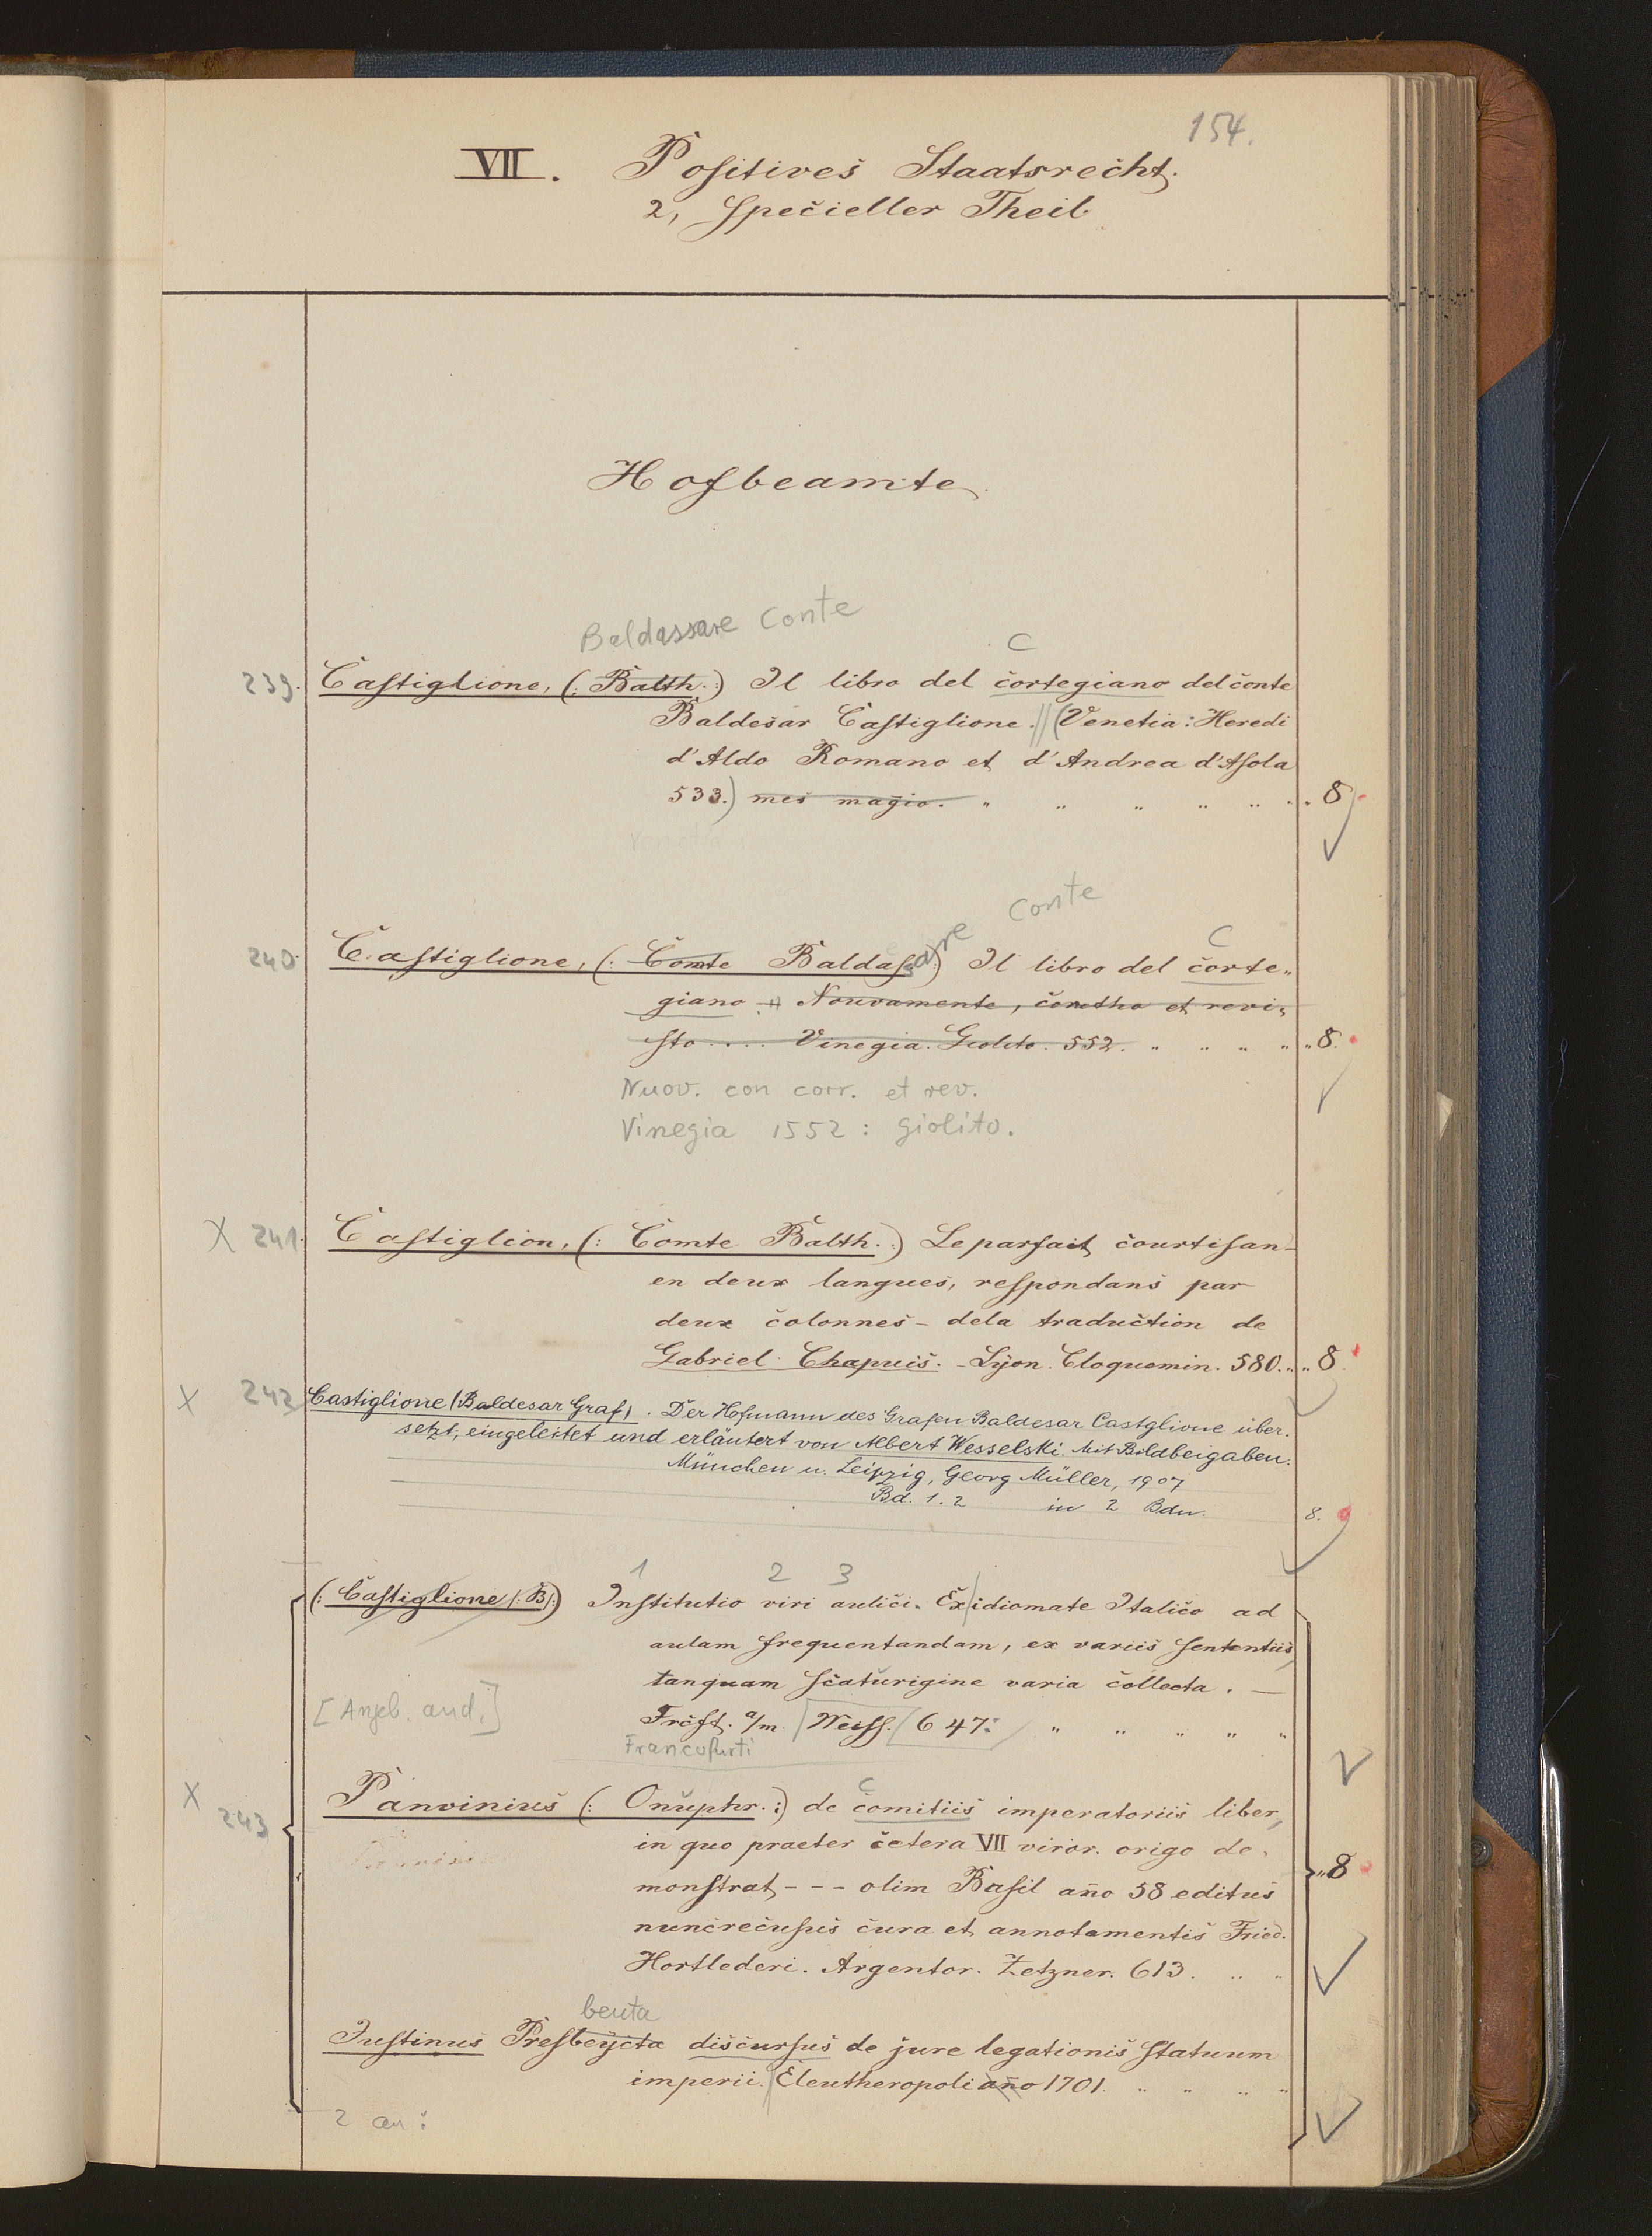 154.
VII. Positives Staatsrecht.
2, specieller Theil
Hofbeamte
Baldassare Conte
C
239. Castiglione, (: Balth. :) Il libro del cortegiano del conte
Baldesar Castiglione. (Venetia: Heredi
d'Aldo Romano et d'Andrea d'Asola
533.) mes magio. " " " " " " 8
Venetia
Conte
C
240. Castiglione, (: Comte Baldassare) Il libro del corte„
giano Nouvamente, coretho et revi„
sto .... Vinegia. Giolito. 552. " " " " " 8.
Nuov. con corr. et rev.
Vinegia 1552: giolito.
X 241. Castiglion, (: Comte Balth. :) Le parfait courtisan-
en deux langues, respondans par
deux colonnes - dela traduction de
Gabriel Chapuis. - Lyon. Cloquemin. 580. " " 8.
X 242 Castiglione (Baldesar Graf). Der Hofmann des Grafen Baldesar Castglione über.
setzt, eingeleitet und erläutert von Albert Wesselski. Mit Bildbeigaben.
München u. Leipzig, Georg Müller, 1907
Bd. 1. 2 in 2 Bdn. 8.
1 2 3
(: Castiglione (: B :) Institutio viri aulici. Ex idiomate Italico ad
aulam frequentandam, ex variis sententiis,
tanquam scaturigine varia collecta. —
[Angeb. and.] Frcft. a/m. Weiss. 647. " " " " "
Francofurti
C
X 243 Panvinius (: Onuphr. :) de comitiis imperatoriis liber,
in quo praeter cetera VII viror. origo de„
monstrat - - - olim Basil año 58 editus " 8
nunc recusus cura et annotamentis Fried.
Hortlederi. Argentor. Zetzner. 613. " "
beuta
Justinus Presbeycta discursus de jure legationis statuum
imperii. Eleutheropoli año 1701. " " " "
2 an: